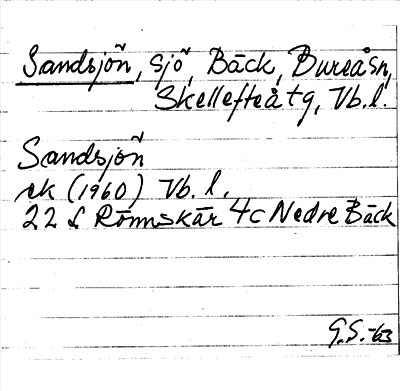 Sandsjön, sjö, Bäck, Bureå sn,
Skellefteå tg, Vb.l.
Sandsjön
ek (1960) Vb.l.
22 L Rönnskär 4c Nedre Bäck
G.S.-63